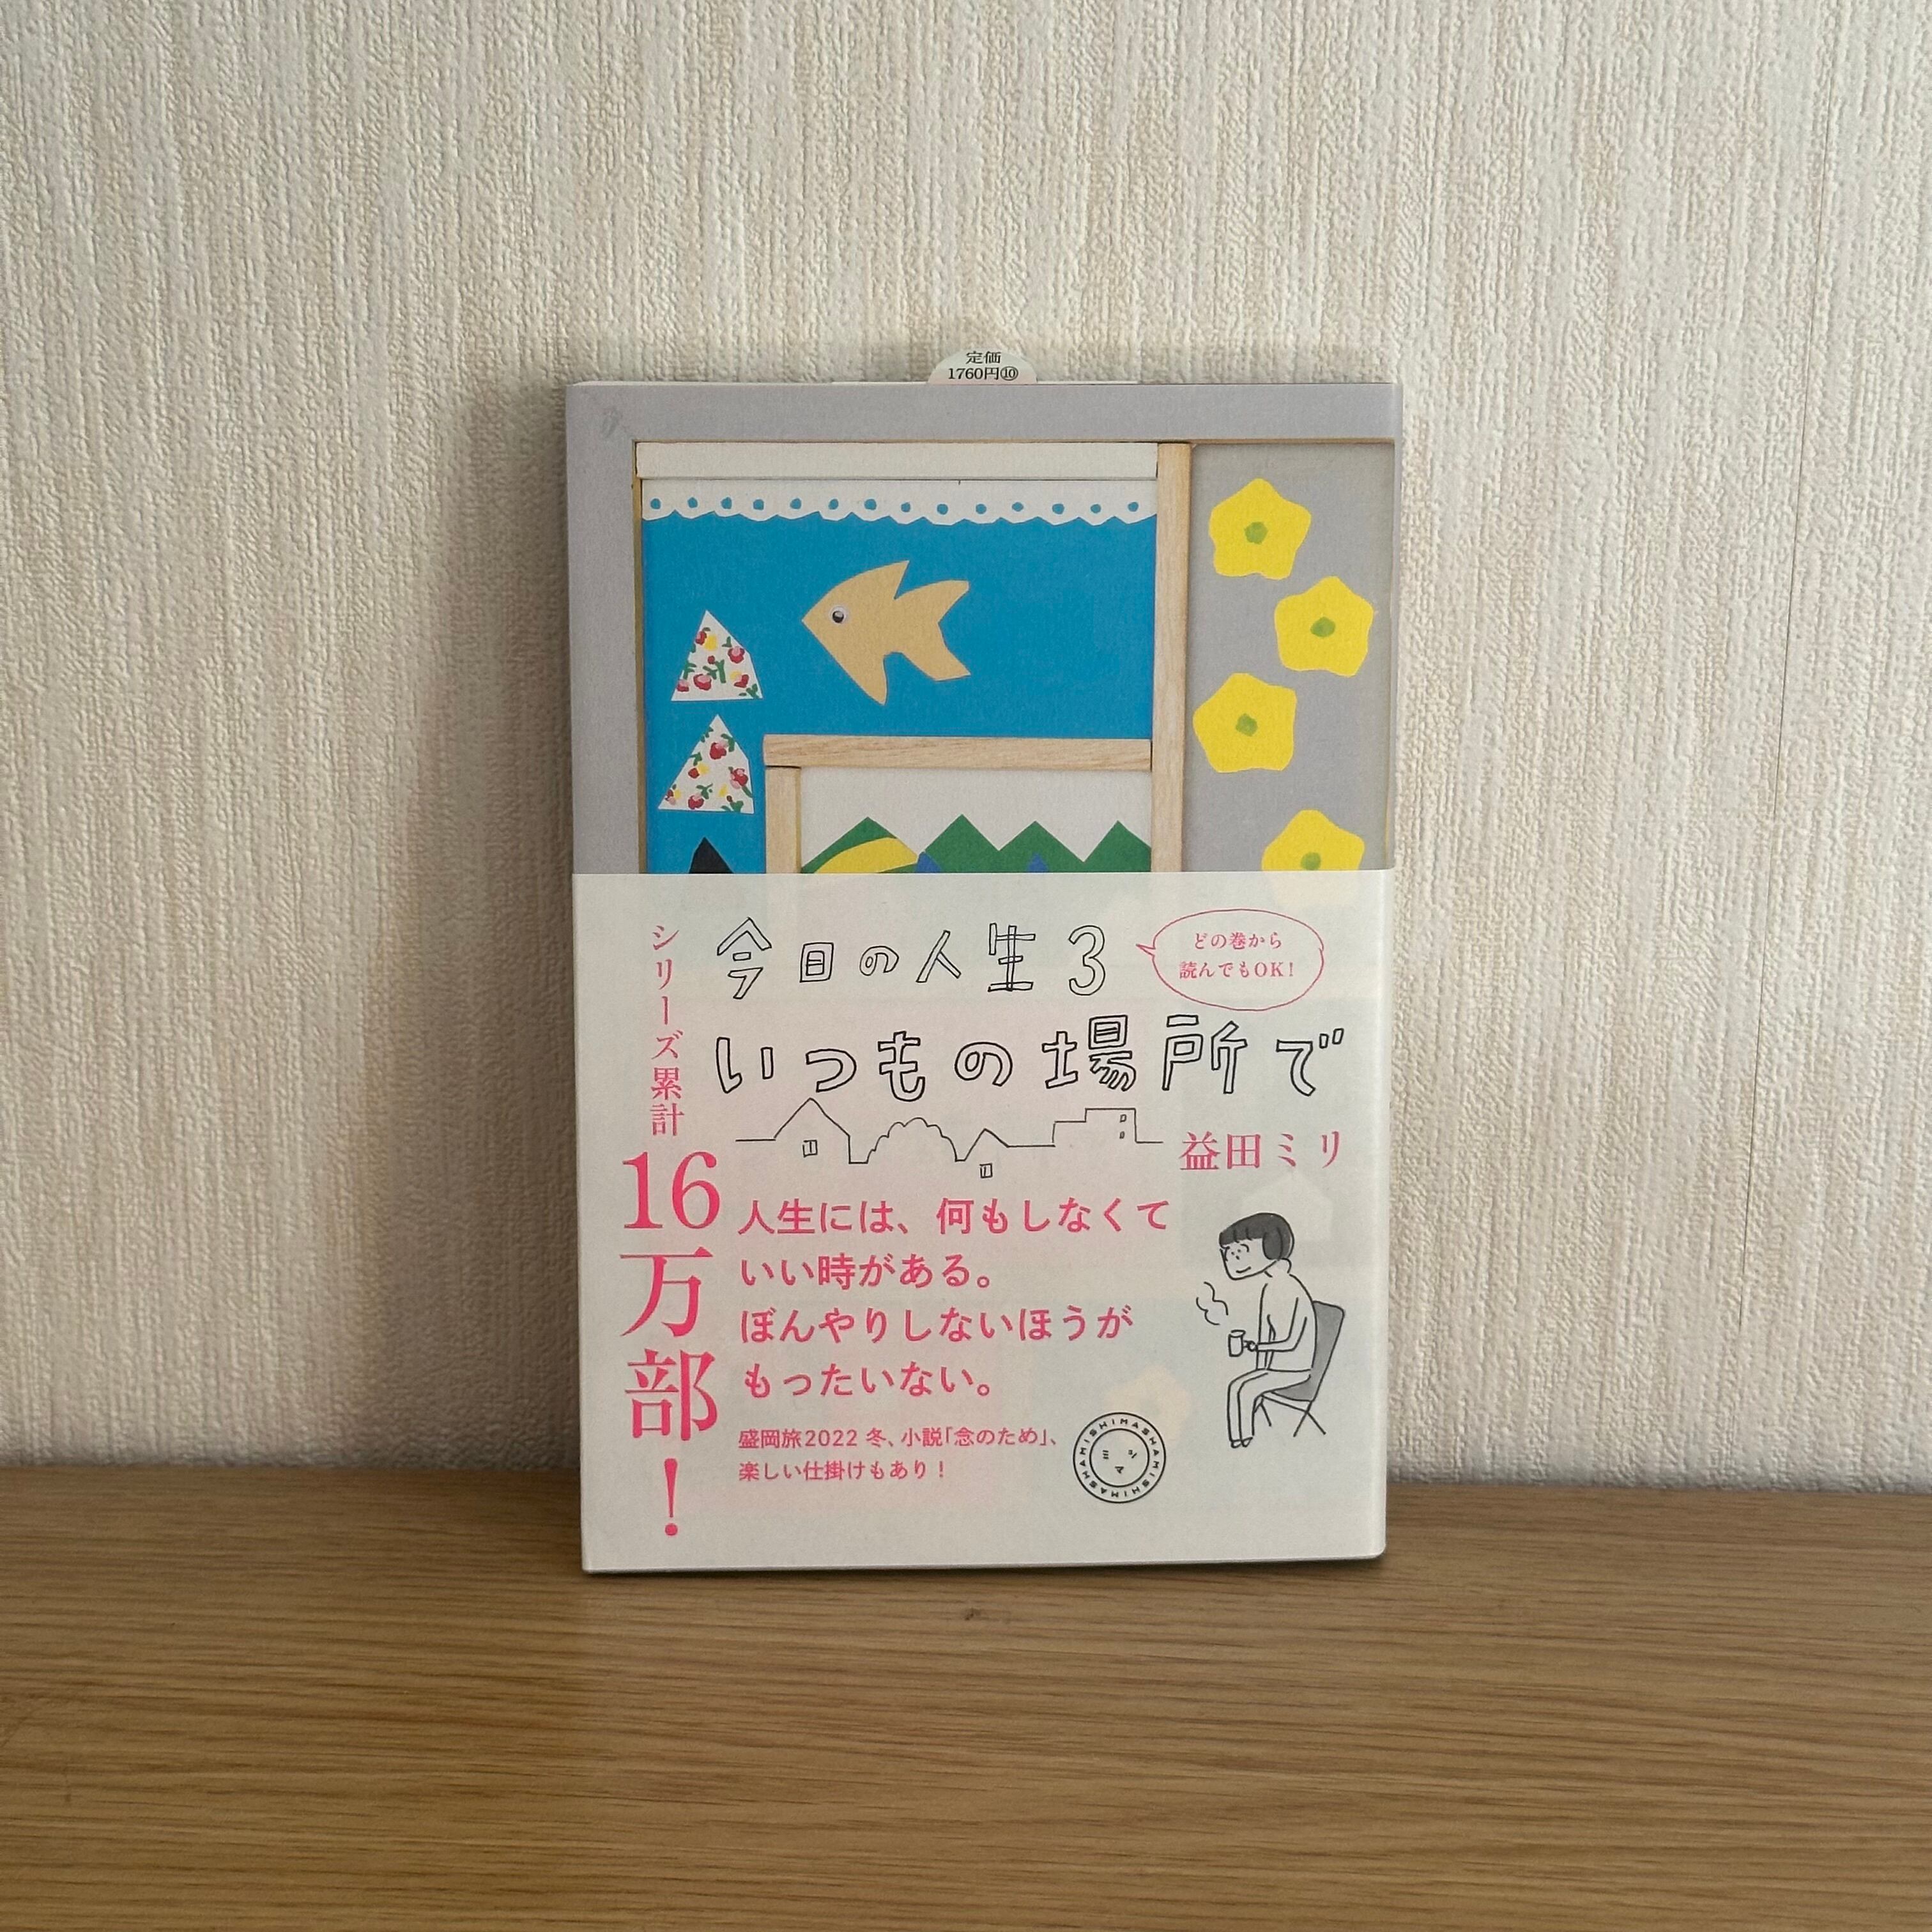 定価
1760円⑩
今日の人生3
どの巻から
読んでもOK!
いつもの場所で
益田ミリ
シリーズ累計
16万部!
人生には、何もしなくて
いい時がある。
ぼんやりしないほうが
もったいない。
盛岡旅2022 冬、小説「念のため」、
楽しい仕掛けもあり!
MISHIMASHAMISHIMASHAMISHIMASHA
ミシマ